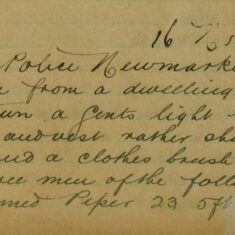 16/5
Police Newmarke
e from a dwelling
wn a Gents light
and vest rather sha
and a clothes brush
ree men of the follo
med Piper 23, 5ft